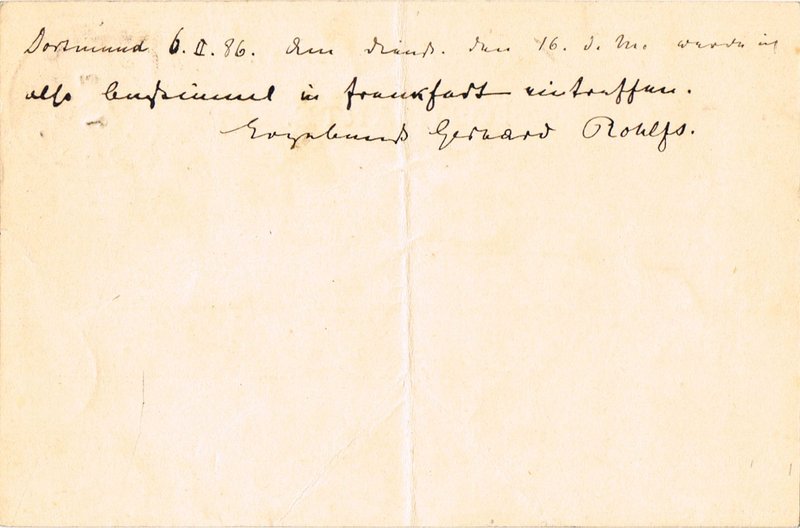 Dortmund 6.II.86. Am Dienst. den 16. d. M. werde ich
also bestimmt in Frankfurt eintreffen.
Ergebenst Gerhard Rohlfs.